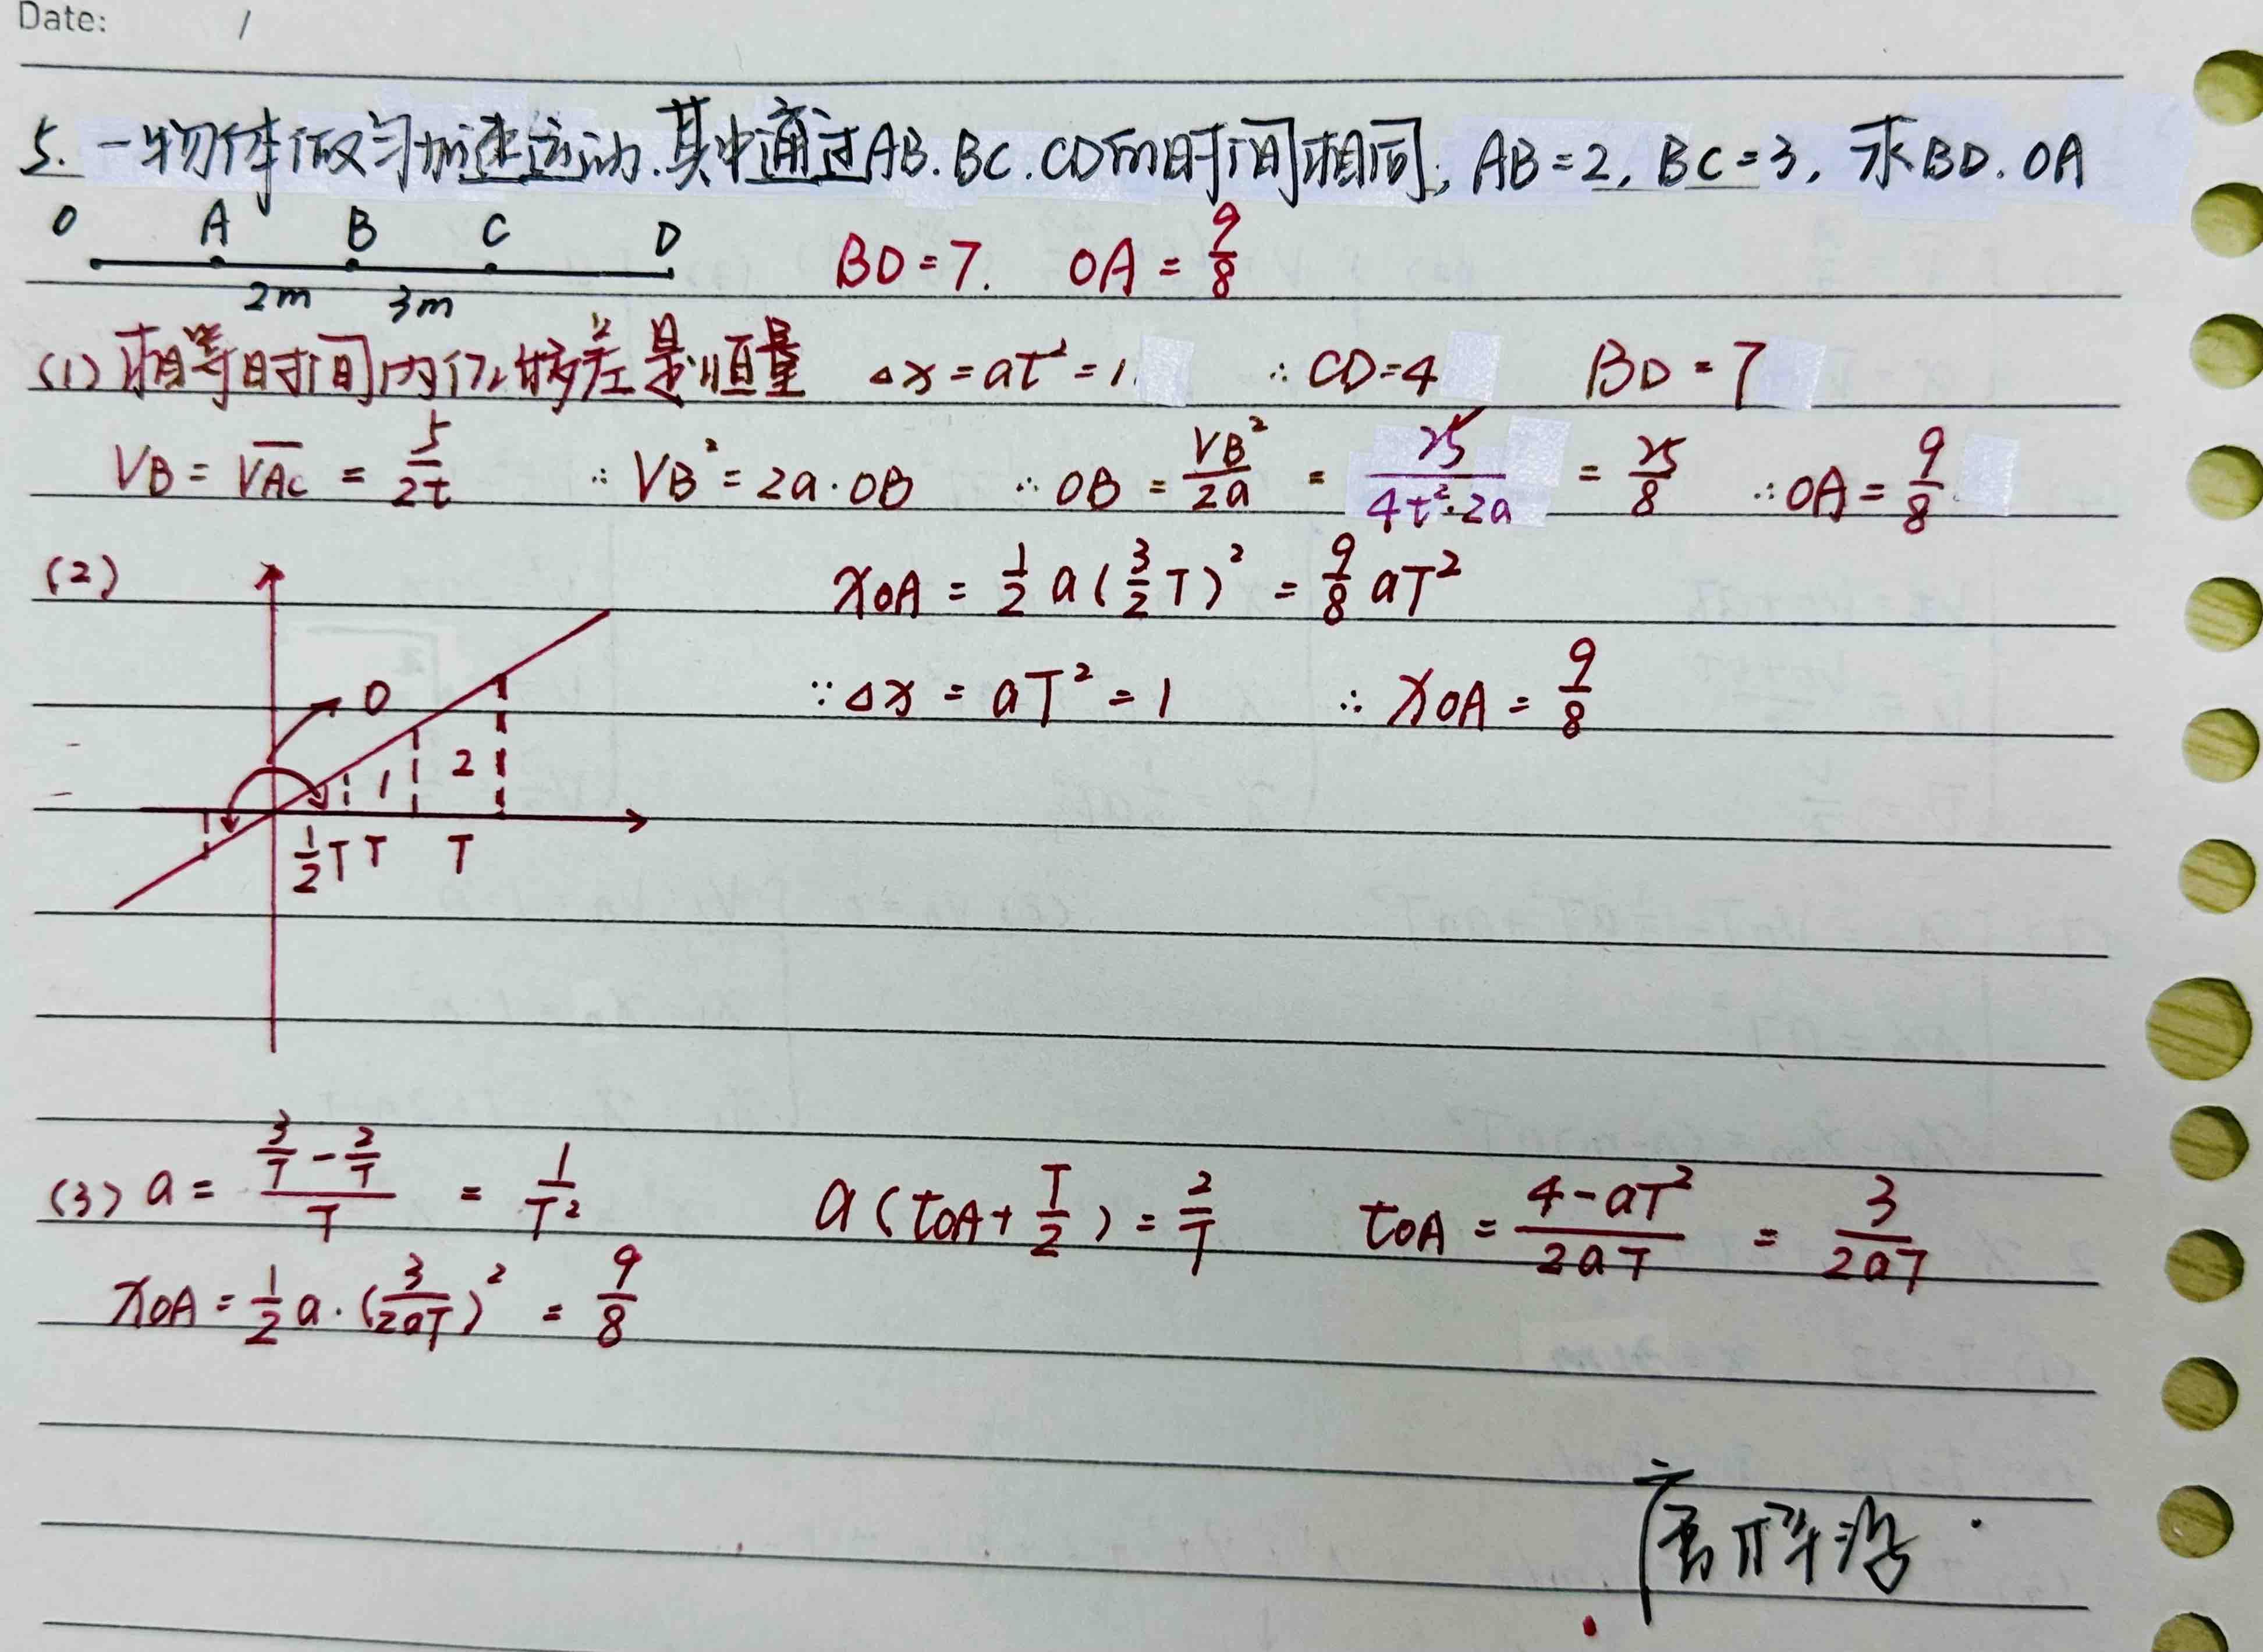 Date: /
5. 一物体做匀加速运动.其中通过AB.BC.CD的时间相同, AB=2, BC=3, 求BD.OA
O A B C D
2m 3m
BD=7. OA=9/8
(1)相等时间内位移差是恒量 △x=at²=1 ∴CD=4 BD=7
VB=V̅AC=5/2t ∴VB²=2a·OB ∴OB=VB²/2a=25/4t²·2a=25/8 ∴OA=9/8
(2) xOA=1/2a(3/2T)²=9/8aT²
∵△x=aT²=1 ∴xOA=9/8
0
1 2
1/2T T T
(3) a=(3/T-2/T)/T=1/T² a(tOA+T/2)=2/T tOA=(4-aT²)/2aT=3/2aT
xOA=1/2a·(3/2aT)²=9/8